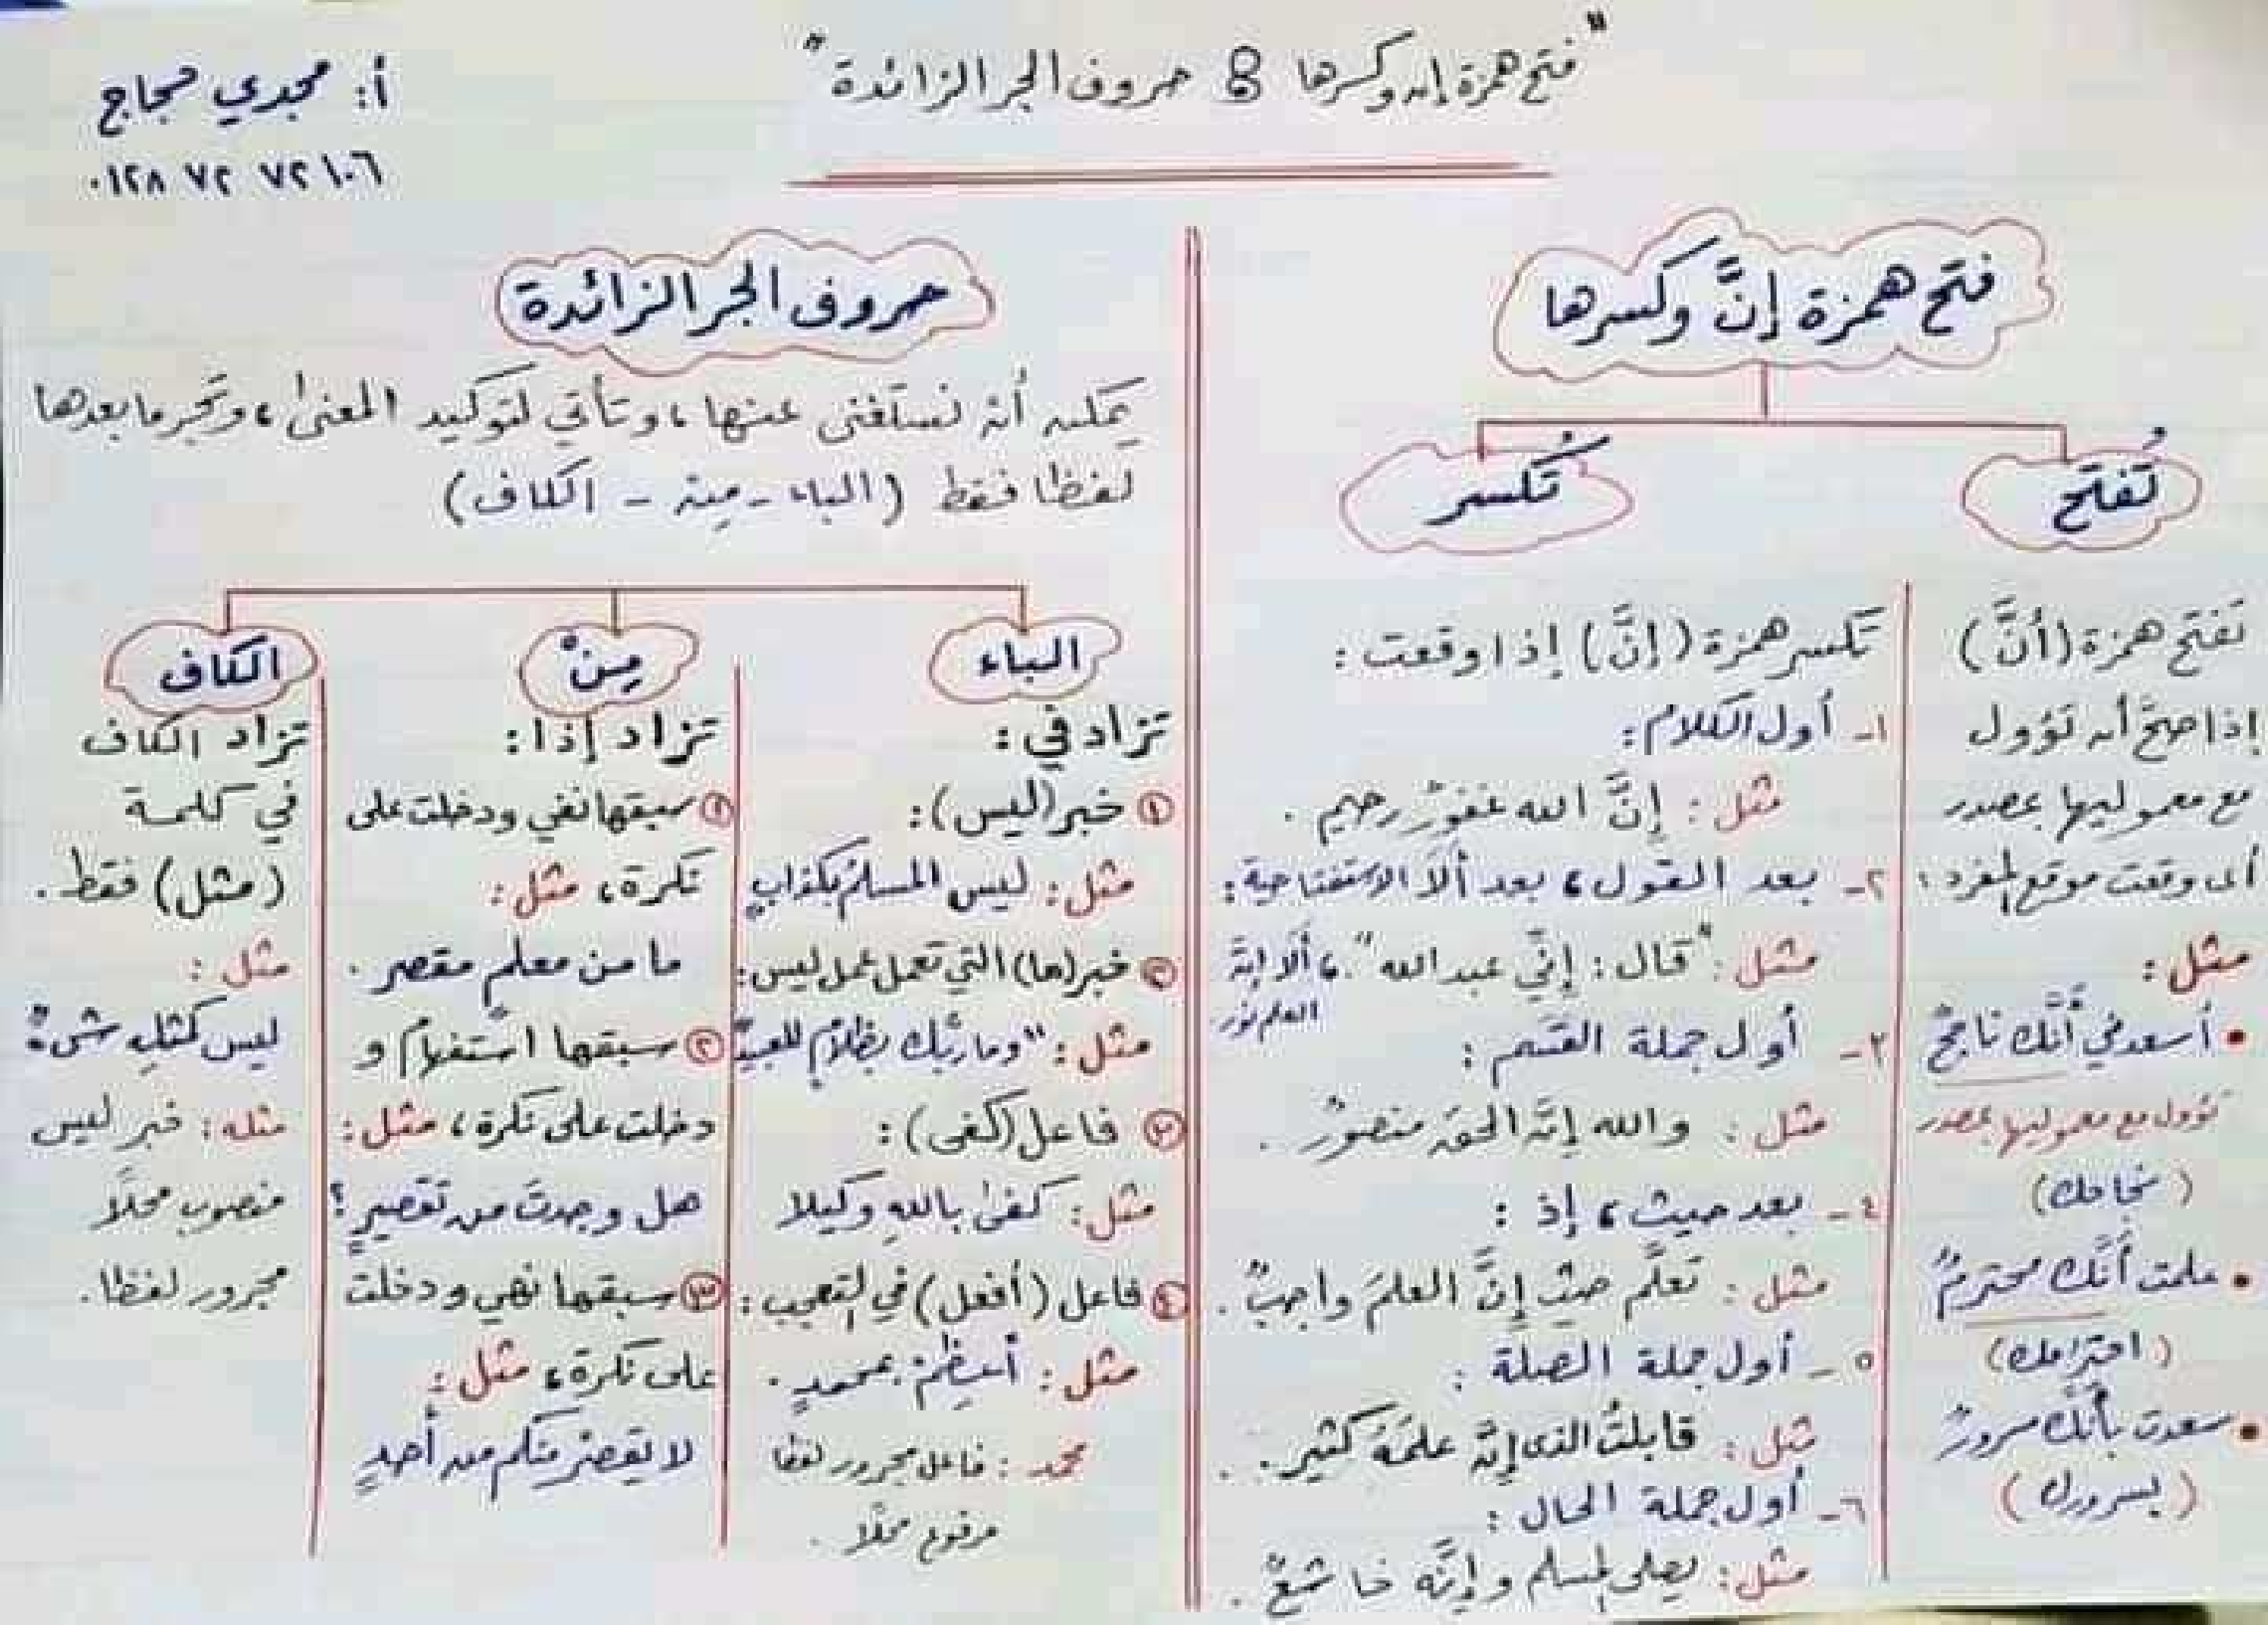 "فتح همزة إن وكسرها & حروف الجر الزائدة"
أ: مجدي حجاج
٠١٢٨ ٧٢ ٧٢ ١٠٦
فتح همزة إنَّ وكسرها
تُفتح
تفتح همزة (أنَّ)
إذا صحَّ أن تؤول
مع معموليها بمصدر
أى وقعت موقع المفرد:
مثل:
• أسعدني أنَّك ناجحٌ
تؤول مع معموليها بمصدر
(نجاحك)
• علمت أنَّك محترمٌ
(احترامك)
• سعدت بأنَّك مسرورٌ
(بسرورك)
تُكسر
تكسر همزة (إنَّ) إذا وقعت:
١- أول الكلام:
مثل: إنَّ الله غفورٌ رحيم.
٢- بعد القول، بعد ألَا الاستفتاحية:
مثل: "قال: إنِّي عبد الله"، ألَا إنَّ
العلم نور
٣- أول جملة القسم:
مثل: والله إنَّ الحق منصورٌ.
٤- بعد حيث، إذ:
مثل: تعلَّم حيث إنَّ العلمَ واجبٌ.
٥- أول جملة الصلة:
مثل: قابلتُ الذى إنَّ علمَهُ كثير.
٦- أول جملة الحال:
مثل: يصلى المسلم وإنَّه خاشعٌ.
حروف الجر الزائدة
يمكن أن نستغنى عنها، وتأتي لتوكيد المعنى، وتجر ما بعدها
لفظا فقط (الباء - مِن - الكاف)
الباء
تزاد في:
① خبر (ليس):
مثل: ليس المسلمُ بكذابٍ
② خبر (ما) التي تعمل عمل ليس:
مثل: "وما ربُّك بظلامٍ للعبيد"
③ فاعل (كفى):
مثل: كفى باللهِ وكيلا
④ فاعل (أفعل) في التعجب:
مثل: أعظِمْ بمحمدٍ.
محمد: فاعل مجرور لفظا
مرفوع محلًا.
مِنْ
تزاد إذا:
① سبقها نفي ودخلت على
نكرة، مثل:
ما من معلمٍ مقصر.
② سبقها استفهام و
دخلت على نكرة، مثل:
هل وجدتَ من تقصيرٍ؟
③ سبقها نهي ودخلت
على نكرة، مثل:
لا يقصرْ منكم من أحدٍ
الكاف
تزاد الكاف
في كلمة
(مثل) فقط.
مثل:
ليس كمثلِهِ شىءٌ
مثله: خبر ليس
منصوب محلًا
مجرور لفظا.